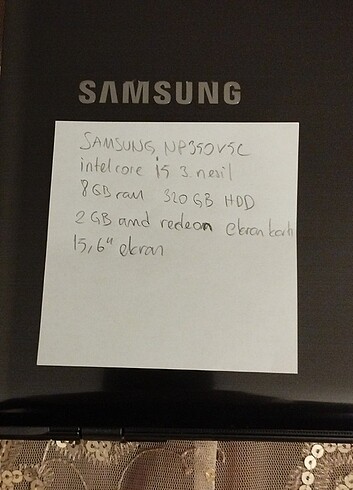 SAMSUNG
SAMSUNG NP350V5C
intel core i5 3. nesil
8GB ram 320 GB HDD
2 GB amd redeon ekran kartı
15,6" ekran